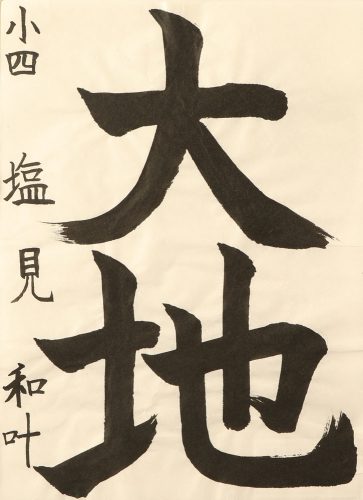 大地
小四 塩見 和叶